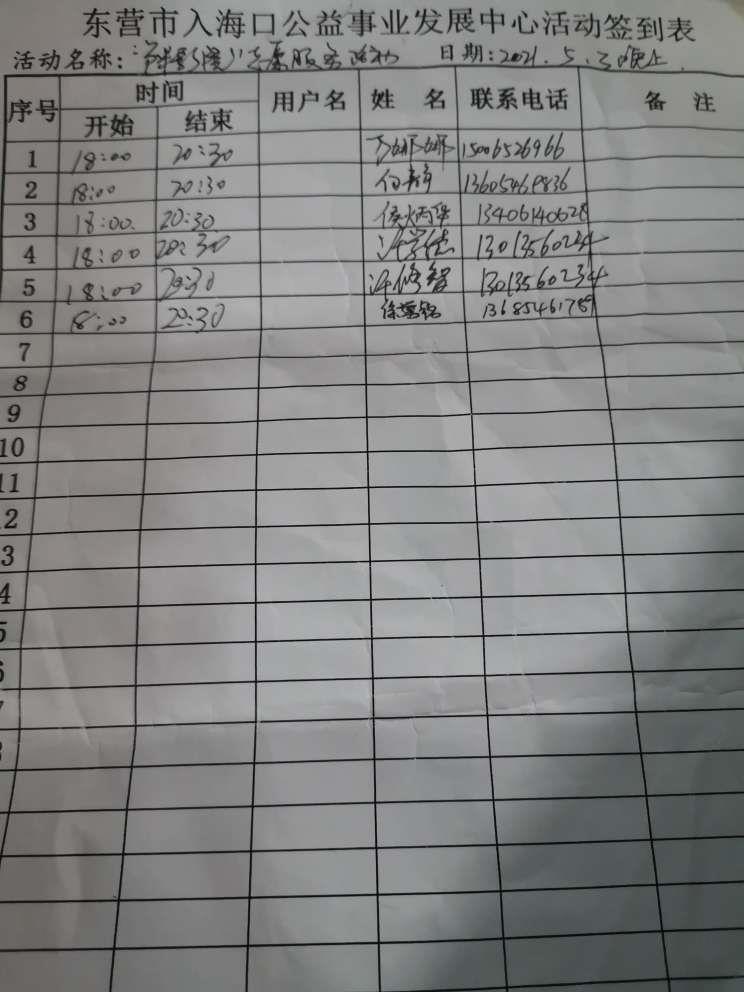 东营市入海口公益事业发展中心活动签到表
活动名称: 志愿服务活动 日期: 2021. 5. 3晚上.
序号 时间 用户名 姓 名 联系电话 备 注
开始 结束
1 18:00 20:30 万娜娜 15006526966
2 18:00 20:30 何静 13605469836
3 18:00. 20:30 侯炳华 13406140628
4 18:00 20:30 许学德 13013560234
5 18:00 20:30 许修智 13013560234
6 18:00 20:30 徐 铭 13685461789
7
8
9
10
11
2
3
4
5